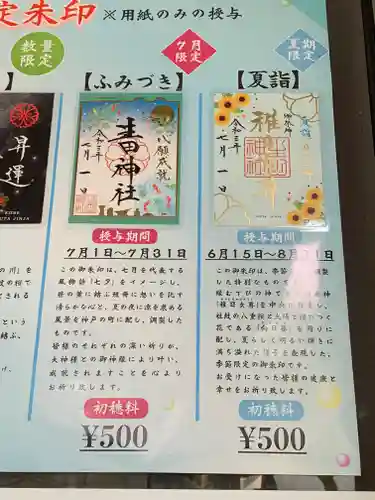 定朱印 ※用紙のみの授与
数量限定
7月限定
夏期限定
【ふみづき】
生田神社
令和三年
七月一日
授与期間
7月1日〜7月31日
この御朱印は、七月を代表する
風物詩「七夕」をイメージし、
笹の葉に結ぶ短冊に想いを託す
清らかな心と、夏の夜に涼を求める
風景を神戸の町に配し、調製した
ものです。
皆様のそれぞれの深い祈りが、
大神様との御神縁により叶い、
成就されますことを心より
お祈り致します。
初穂料
¥500
【夏詣】
夏詣
令和三年
七月一日
授与期間
6月15日〜8月31日
この御朱印は、季節
した特別なもので
花である「向日葵」を周りに
配し、夏らしく明るい輝きに
季節限定の御朱印です。
お受けになった皆様の健康と
幸せをお祈り致します。
初穂料
¥500
昇運